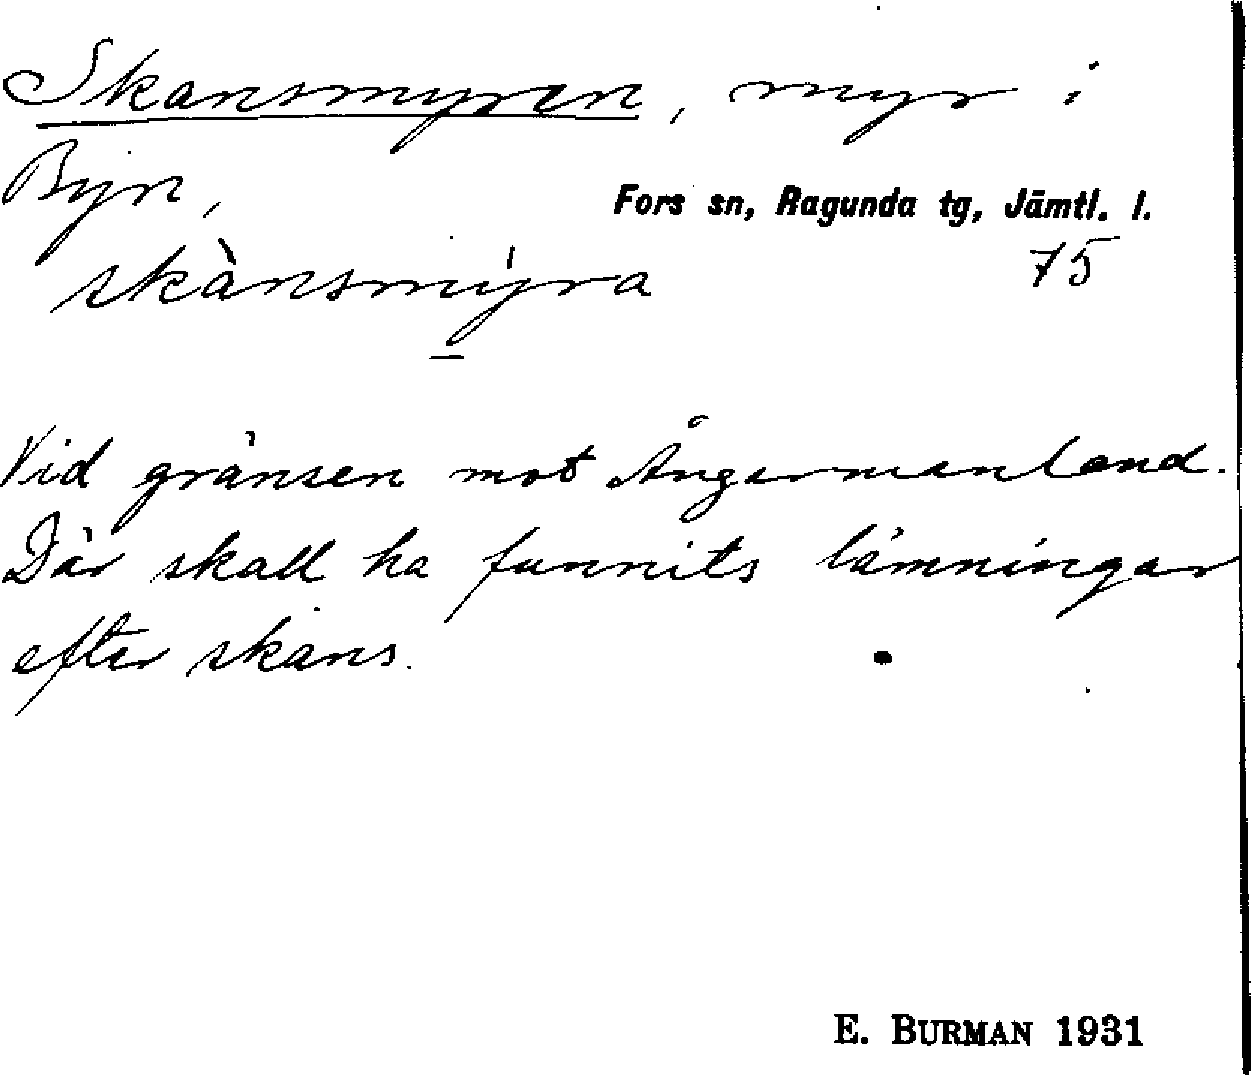 Skansmyren, myr i
Byn,
Fors sn, Ragunda tg, Jämtl. l.
skànsmýra
75
Vid gränsen mot Ångermanland.
Där skall ha funnits lämningar
efter skans.
E. BURMAN 1931